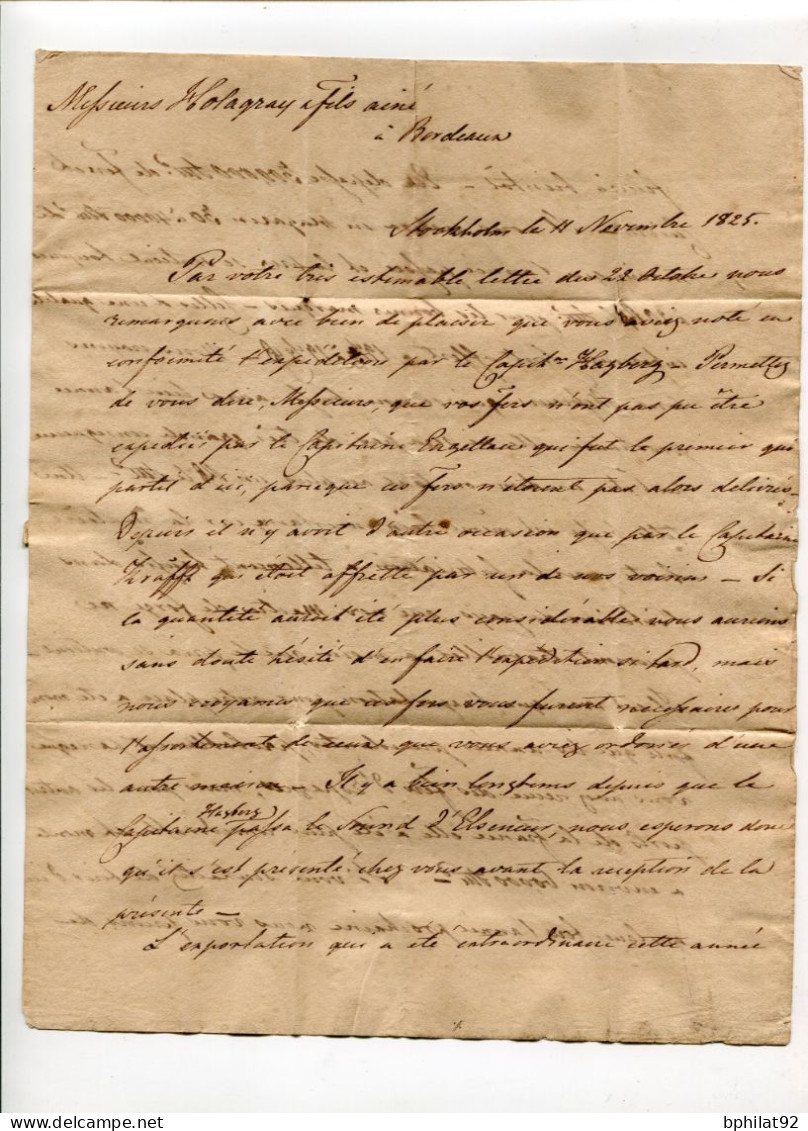 Messieurs Holagray & Fils ainé
à Bordeaux
Stockholm le 11 Novembre 1825.
Par votre très estimable lettre du 22 Octobre nous
remarquons avec bien de plaisir que vous aviez noté en
conformité l'expedition par le Capitne Hagberg – Permettez
de vous dire, Messieurs, que vos fers n'ont pas pu être
expediés par le Capitaine qui fut le premier qui
partit d'ici, parceque ces Fers n'étoient pas alors delivrés –
Depuis il n'y avoit d'autre occasion que par le Capitaine
qui étoit affretté par un de nos voisins – Si
la quantité auroit été plus considérable nous aurions
sans doute hésité d'en faire l'expedition si tard, mais
nous croyames que ces fers vous furent necessaires pour
l'assortiments de ceux que vous aviez ordonnés d'une
autre maison – Il y a bien longtems depuis que le
Capitaine Hagberg passa le Sound d'Elseneur, nous esperons donc
qu'il s'est présenté chez vous avant la reception de la
présente –
L'exportation qui a eté extraordinaire cette année
bphilat92